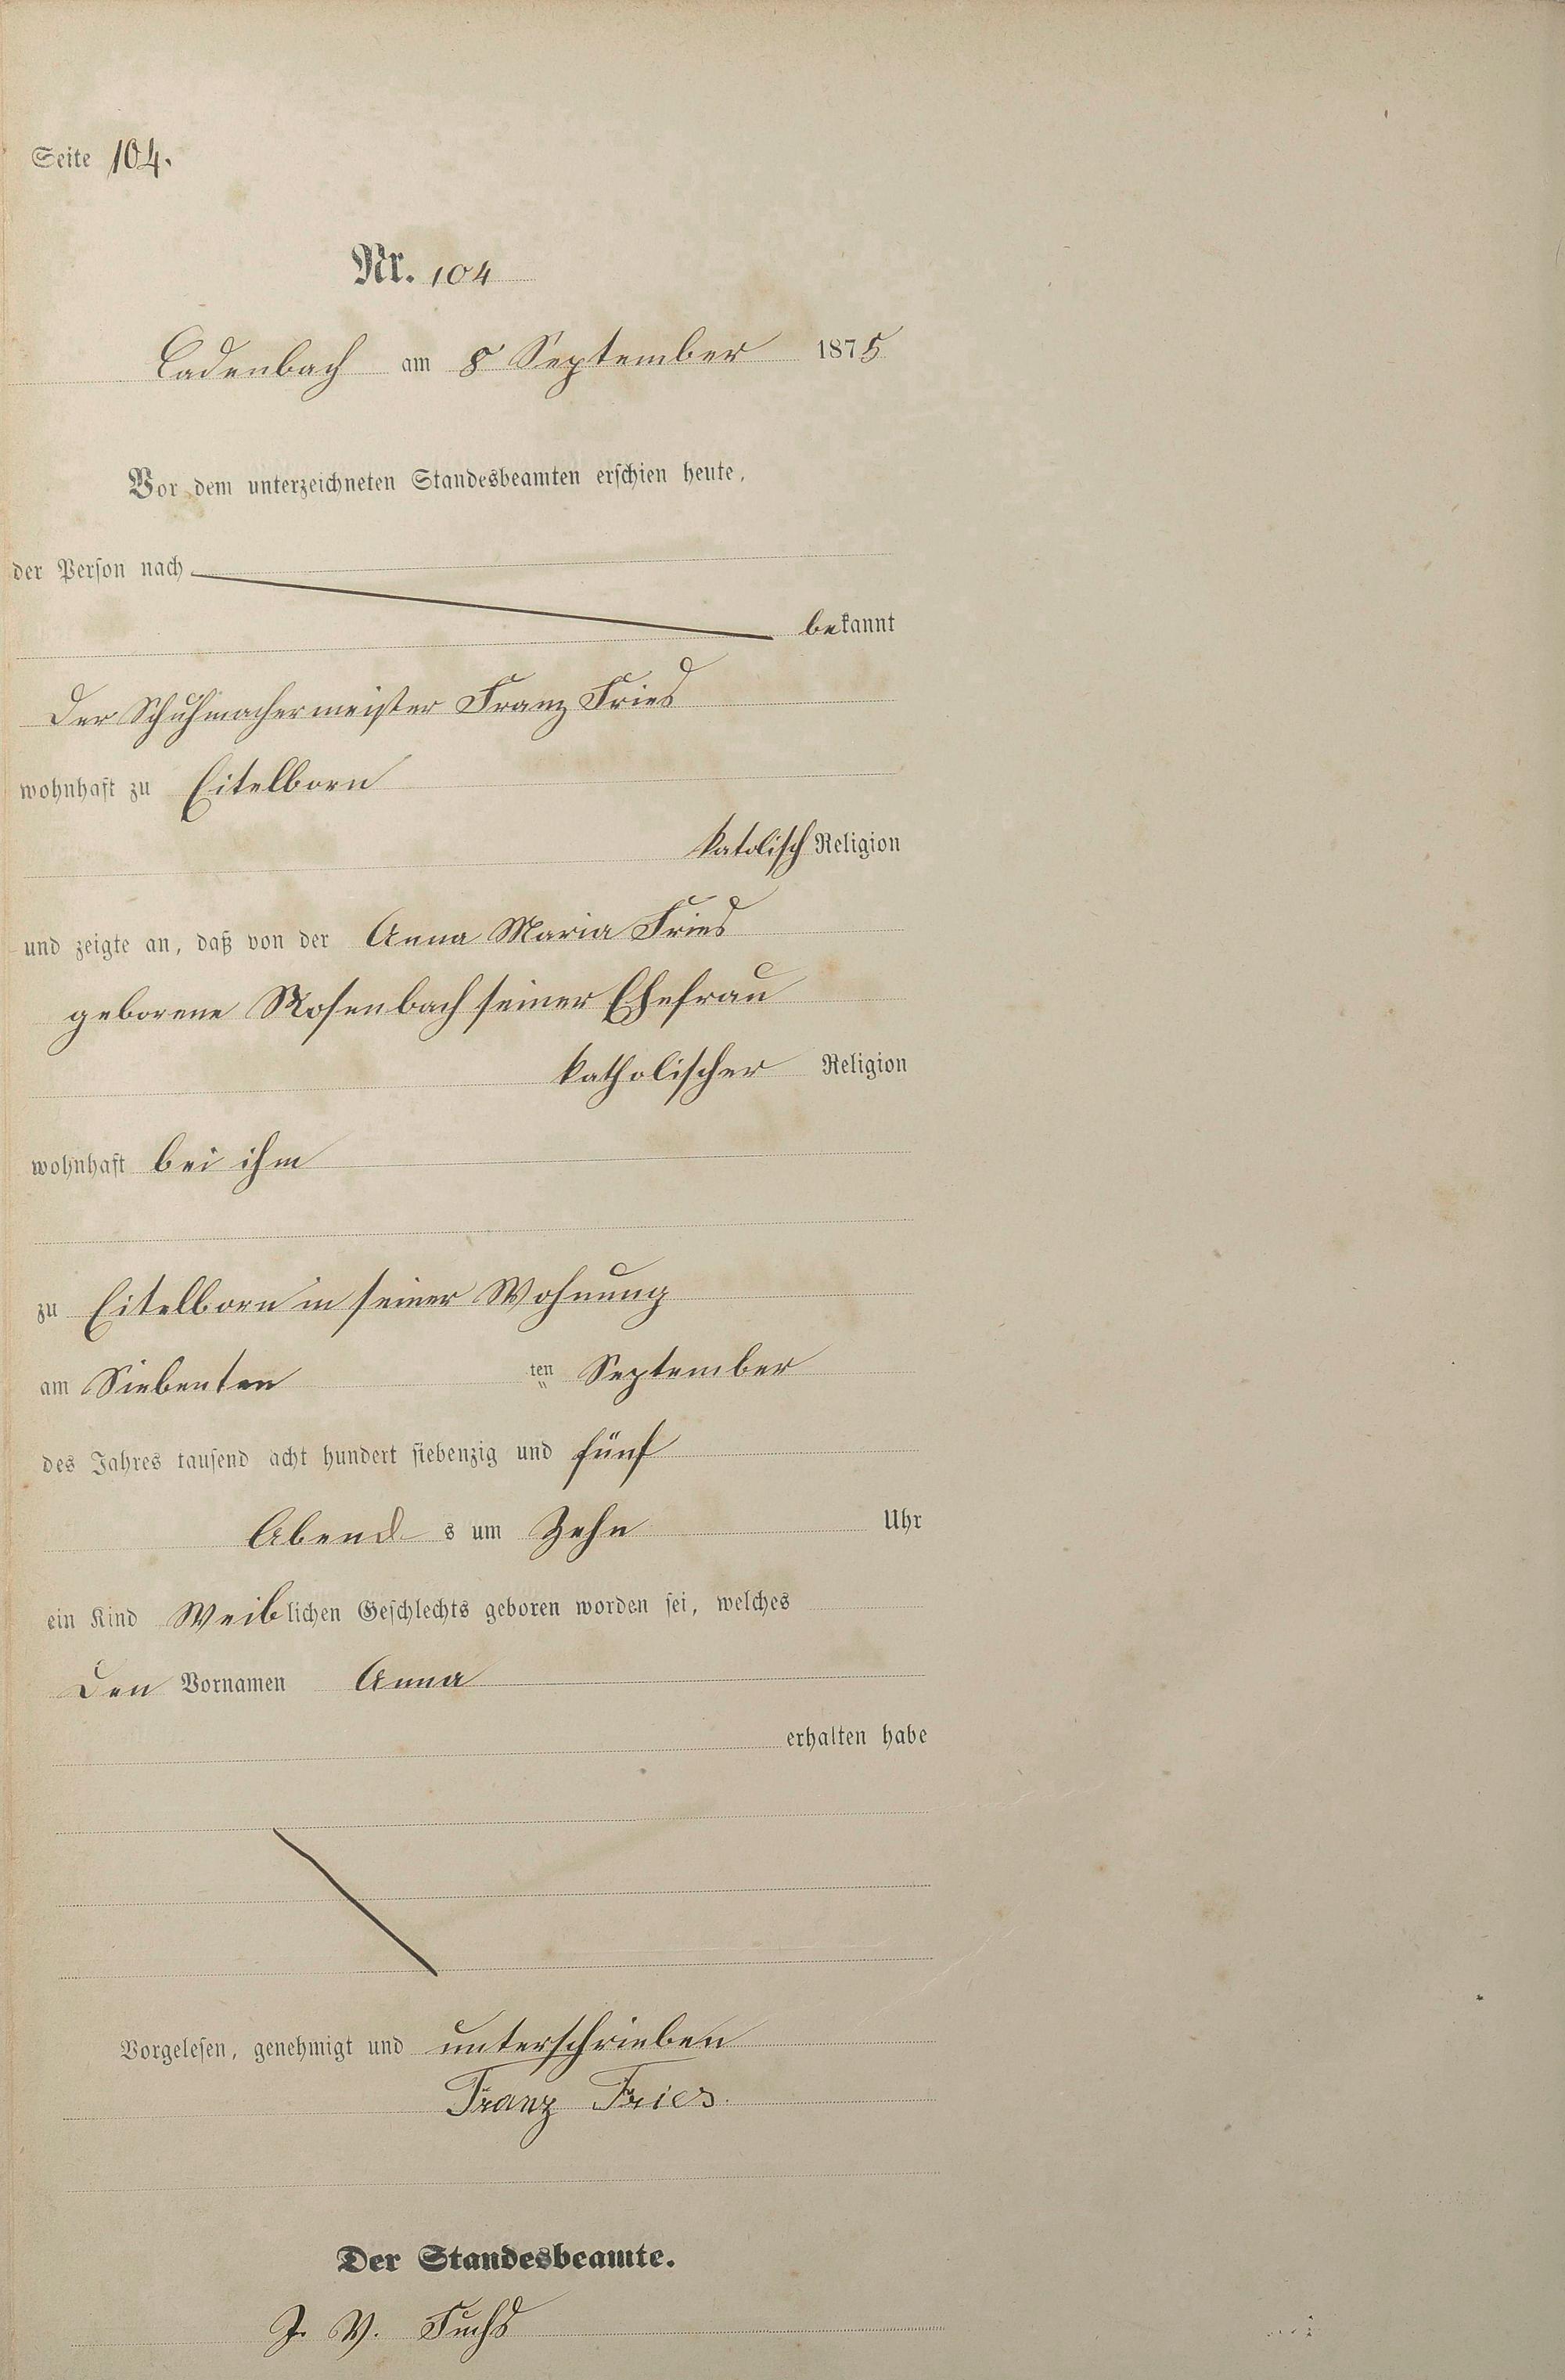 Seite 104.
Nr. 104
Cadenbach am 8 September 1875
Vor dem unterzeichneten Standesbeamten erschien heute,
der Person nach
bekannt
Der Schuhmachermeister Franz Fries
wohnhaft zu Eitelborn
katolisch Religion
und zeigte an, daß von der Anna Maria Fries
geborene Rosenbach seiner Ehefrau
katholischer Religion
wohnhaft bei ihm
zu Eitelborn in seiner Wohnung
am Siebenten ten September
des Jahres tausend acht hundert siebenzig und fünf
Abend s um Zehn Uhr
ein Kind Weiblichen Geschlechts geboren worden sei, welches
Den Vornamen Anna
erhalten habe
Vorgelesen, genehmigt und unterschrieben
Franz Fries.
Der Standesbeamte.
J. V. Fuchs